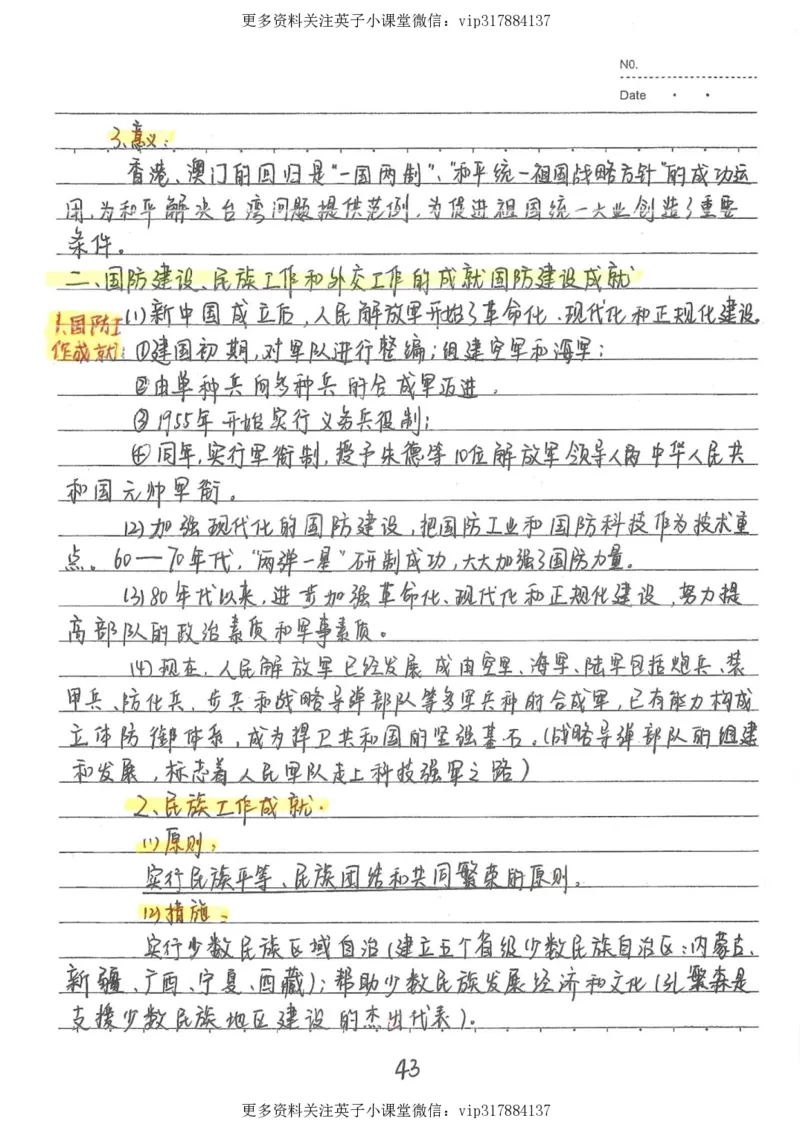 更多资料关注英子小课堂微信：vip317884137
NO.
Date
3、意义：
香港、澳门的回归是“一国两制”、“和平统一祖国战略方针”的成功运
用，为和平解决台湾问题提供范例，为促进祖国统一大业创造了重要
条件。
二、国防建设、民族工作和外交工作的成就国防建设成就
1、国防工
作成就：
(1)新中国成立后，人民解放军开始了革命化、现代化和正规化建设。
①建国初期，对军队进行整编；组建空军和海军；
②由单种兵向多种兵的合成军迈进。
③1955年开始实行义务兵役制；
④同年，实行军衔制，授予朱德等10位解放军领导人为中华人民共
和国元帅军衔。
(2)加强现代化的国防建设，把国防工业和国防科技作为技术重
点。60—70年代，“两弹一星”研制成功，大大加强了国防力量。
(3)80年代以来，进步加强革命化、现代化和正规化建设，努力提
高部队的政治素质和军事素质。
(4)现在，人民解放军已经发展成由空军、海军、陆军包括炮兵、装
甲兵、防化兵、步兵和战略导弹部队等多军兵种的合成军，已有能力构成
立体防御体系，成为捍卫共和国的坚强基石。(战略导弹部队的组建
和发展，标志着人民军队走上科技强军之路)
2、民族工作成就.
(1)原则：
实行民族平等、民族团结和共同繁荣的原则。
(2)措施：
实行少数民族区域自治(建立五个省级少数民族自治区：内蒙古、
新疆、广西、宁夏、西藏)；帮助少数民族发展经济和文化(孔繁森是
支援少数民族地区建设的杰出代表)。
43
更多资料关注英子小课堂微信：vip317884137